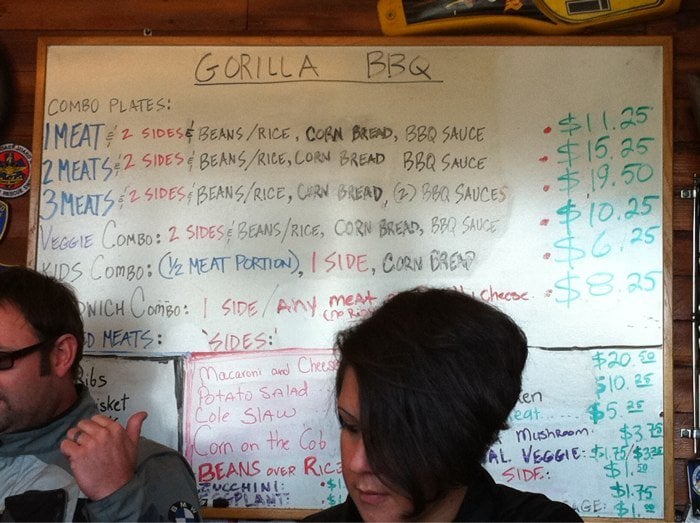 GORILLA BBQ
COMBO PLATES:
1 MEAT & 2 SIDES & BEANS/RICE, CORN BREAD, BBQ SAUCE • $11.25
2 MEATS & 2 SIDES & BEANS/RICE, CORN BREAD BBQ SAUCE • $15.25
3 MEATS & 2 SIDES & BEANS/RICE, CORN BREAD, (2) BBQ SAUCES • $19.50
VEGGIE COMBO: 2 SIDES & BEANS/RICE, CORN BREAD, BBQ SAUCE • $10.25
KIDS COMBO: (1/2 MEAT PORTION), 1 SIDE, CORN BREAD • $6.25
NICH COMBO: 1 SIDE/Any meat cheese. • $8.25
D MEATS: 'SIDES:'
ibs
isket
Macaroni and Cheese
Potato SALAD
Cole SLAW
Corn on the Cob
BEANS over RICE
ZUCCHINI:
EGGPLANT:
$20.50
ken $10.25
eat..... $5.25
MUSHROOM: $3.75
AL VEGGIE: $1.75/$3.25
SIDE: $1.50
$1.75
AGE:
BMW